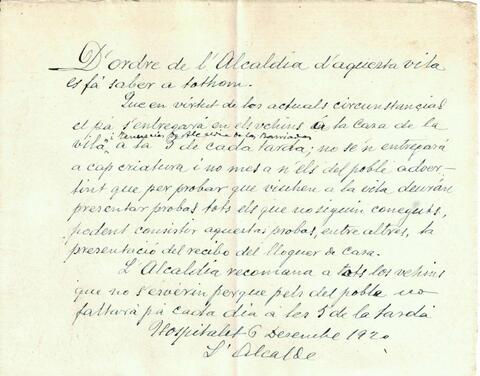 D'ordre de l'Alcaldia d'aquesta vila
es fá saber a tothom.
Que en virtut de los actuals circunstancias
el pá s'entregará en els vehins á la Casa de la
i Tenencia de Alcaldia de la Barriada
vila, a la 3 de cada tarda; no se'n entregará
a cap criatura i no mes a n'els del poble adver-
tint que per probar que viuhen a la vila deurán
presentar probas tots els que no siguin coneguts,
podent consistir aquestas probas, entre altres, la
presentació del recibo del lloguer de casa.
L'Alcaldia recomana a tots los vehins
que no s'enervin perque pels del poble no
faltará pá cada dia á les 3 de la tarda
Hospitalet 6 Desembre 1920
L'Alcalde